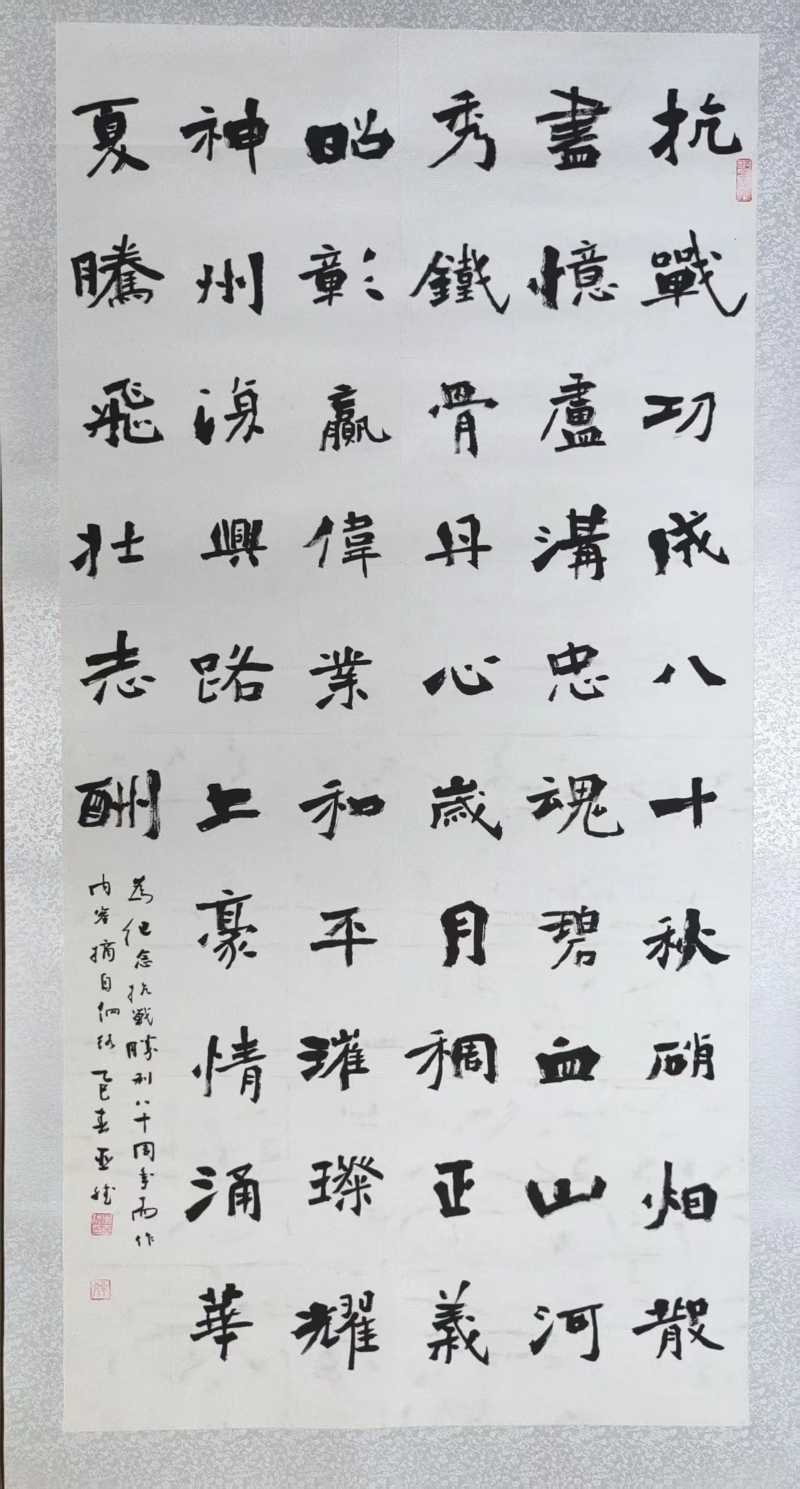 抗戰功成八十秋硝烟散
盡憶盧溝忠魂碧血山河
秀鐵骨丹心歲月稠正義
昭彰贏偉業和平漼璨耀
神州復興路上豪情涌華
夏騰飛壯志酬
為紀念抗戰勝利八十周年而作
内容摘自網絡乙巳春亞